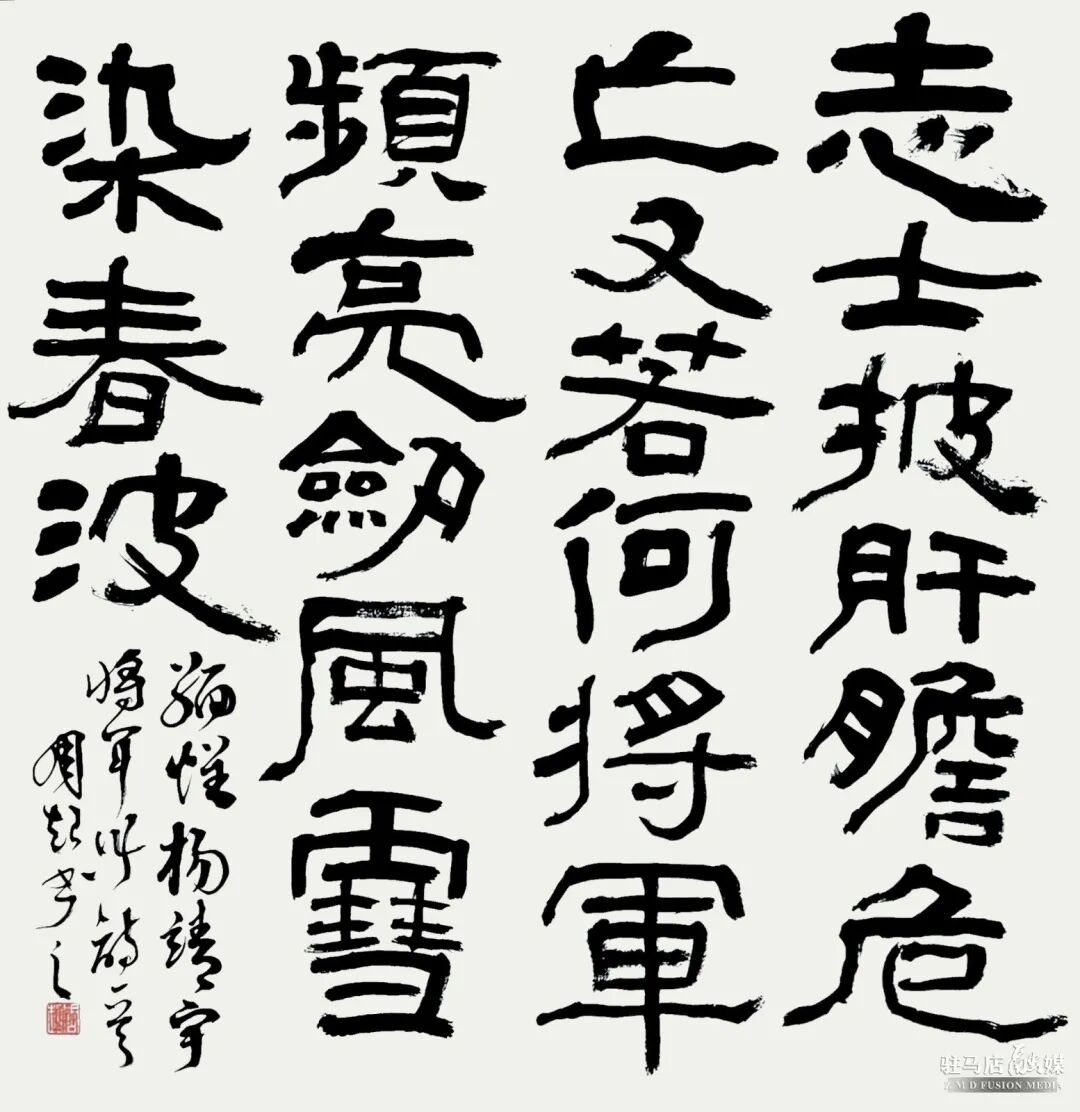 志士披肝膽危
亡又若何將軍
頻亮劍風雪
染春波
緬懷楊靖宇
將軍作詩一首
周超書之
驻马店融媒
ZMD FUSION MEDIA